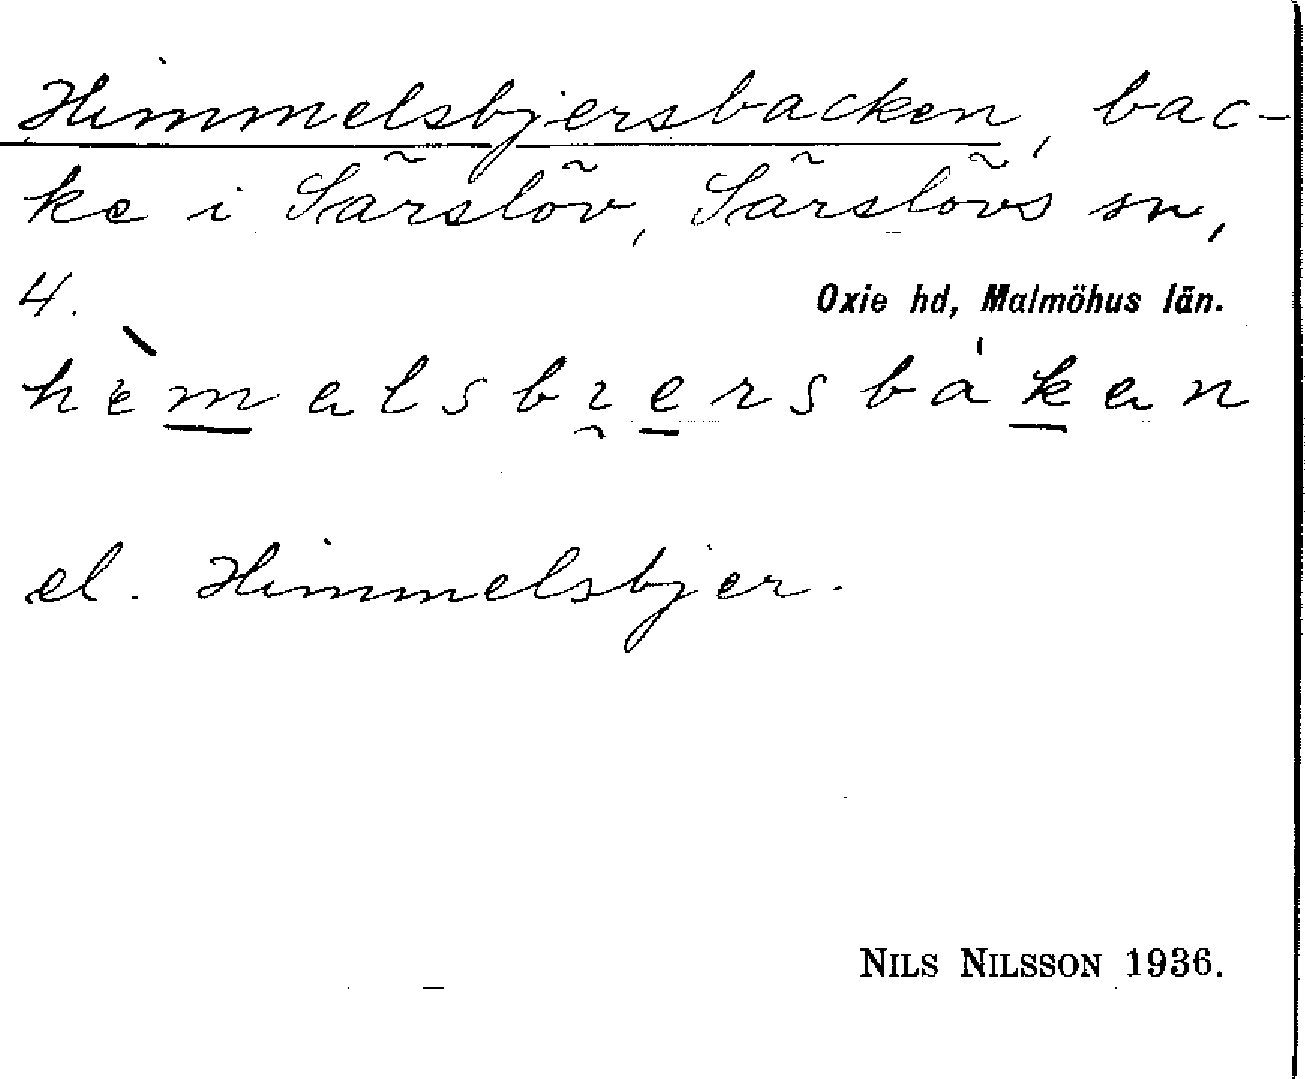 Himmelsbjersbacken, bac-
ke i Särslöv, Särslövs sn,
4.
Oxie hd, Malmöhus län.
hèmalsbi̯ersbákan
el. Himmelsbjer.
NILS NILSSON 1936.